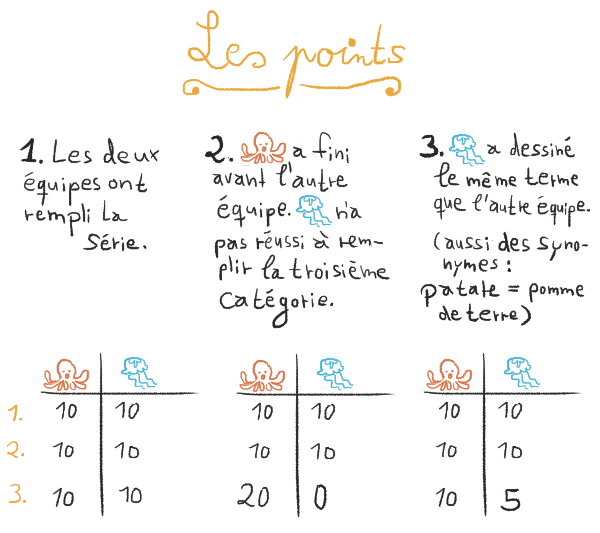 Les points
1. Les deux
équipes ont
rempli la
série.
2. a fini
avant l'autre
équipe. n'a
pas réussi à rem-
plir la troisième
catégorie.
3. a dessiné
le même terme
que l'autre équipe.
(aussi des syno-
nymes :
patate = pomme
de terre)
1. 10 10
2. 10 10
3. 10 10
10 10
10 10
20 0
10 10
10 10
10 5